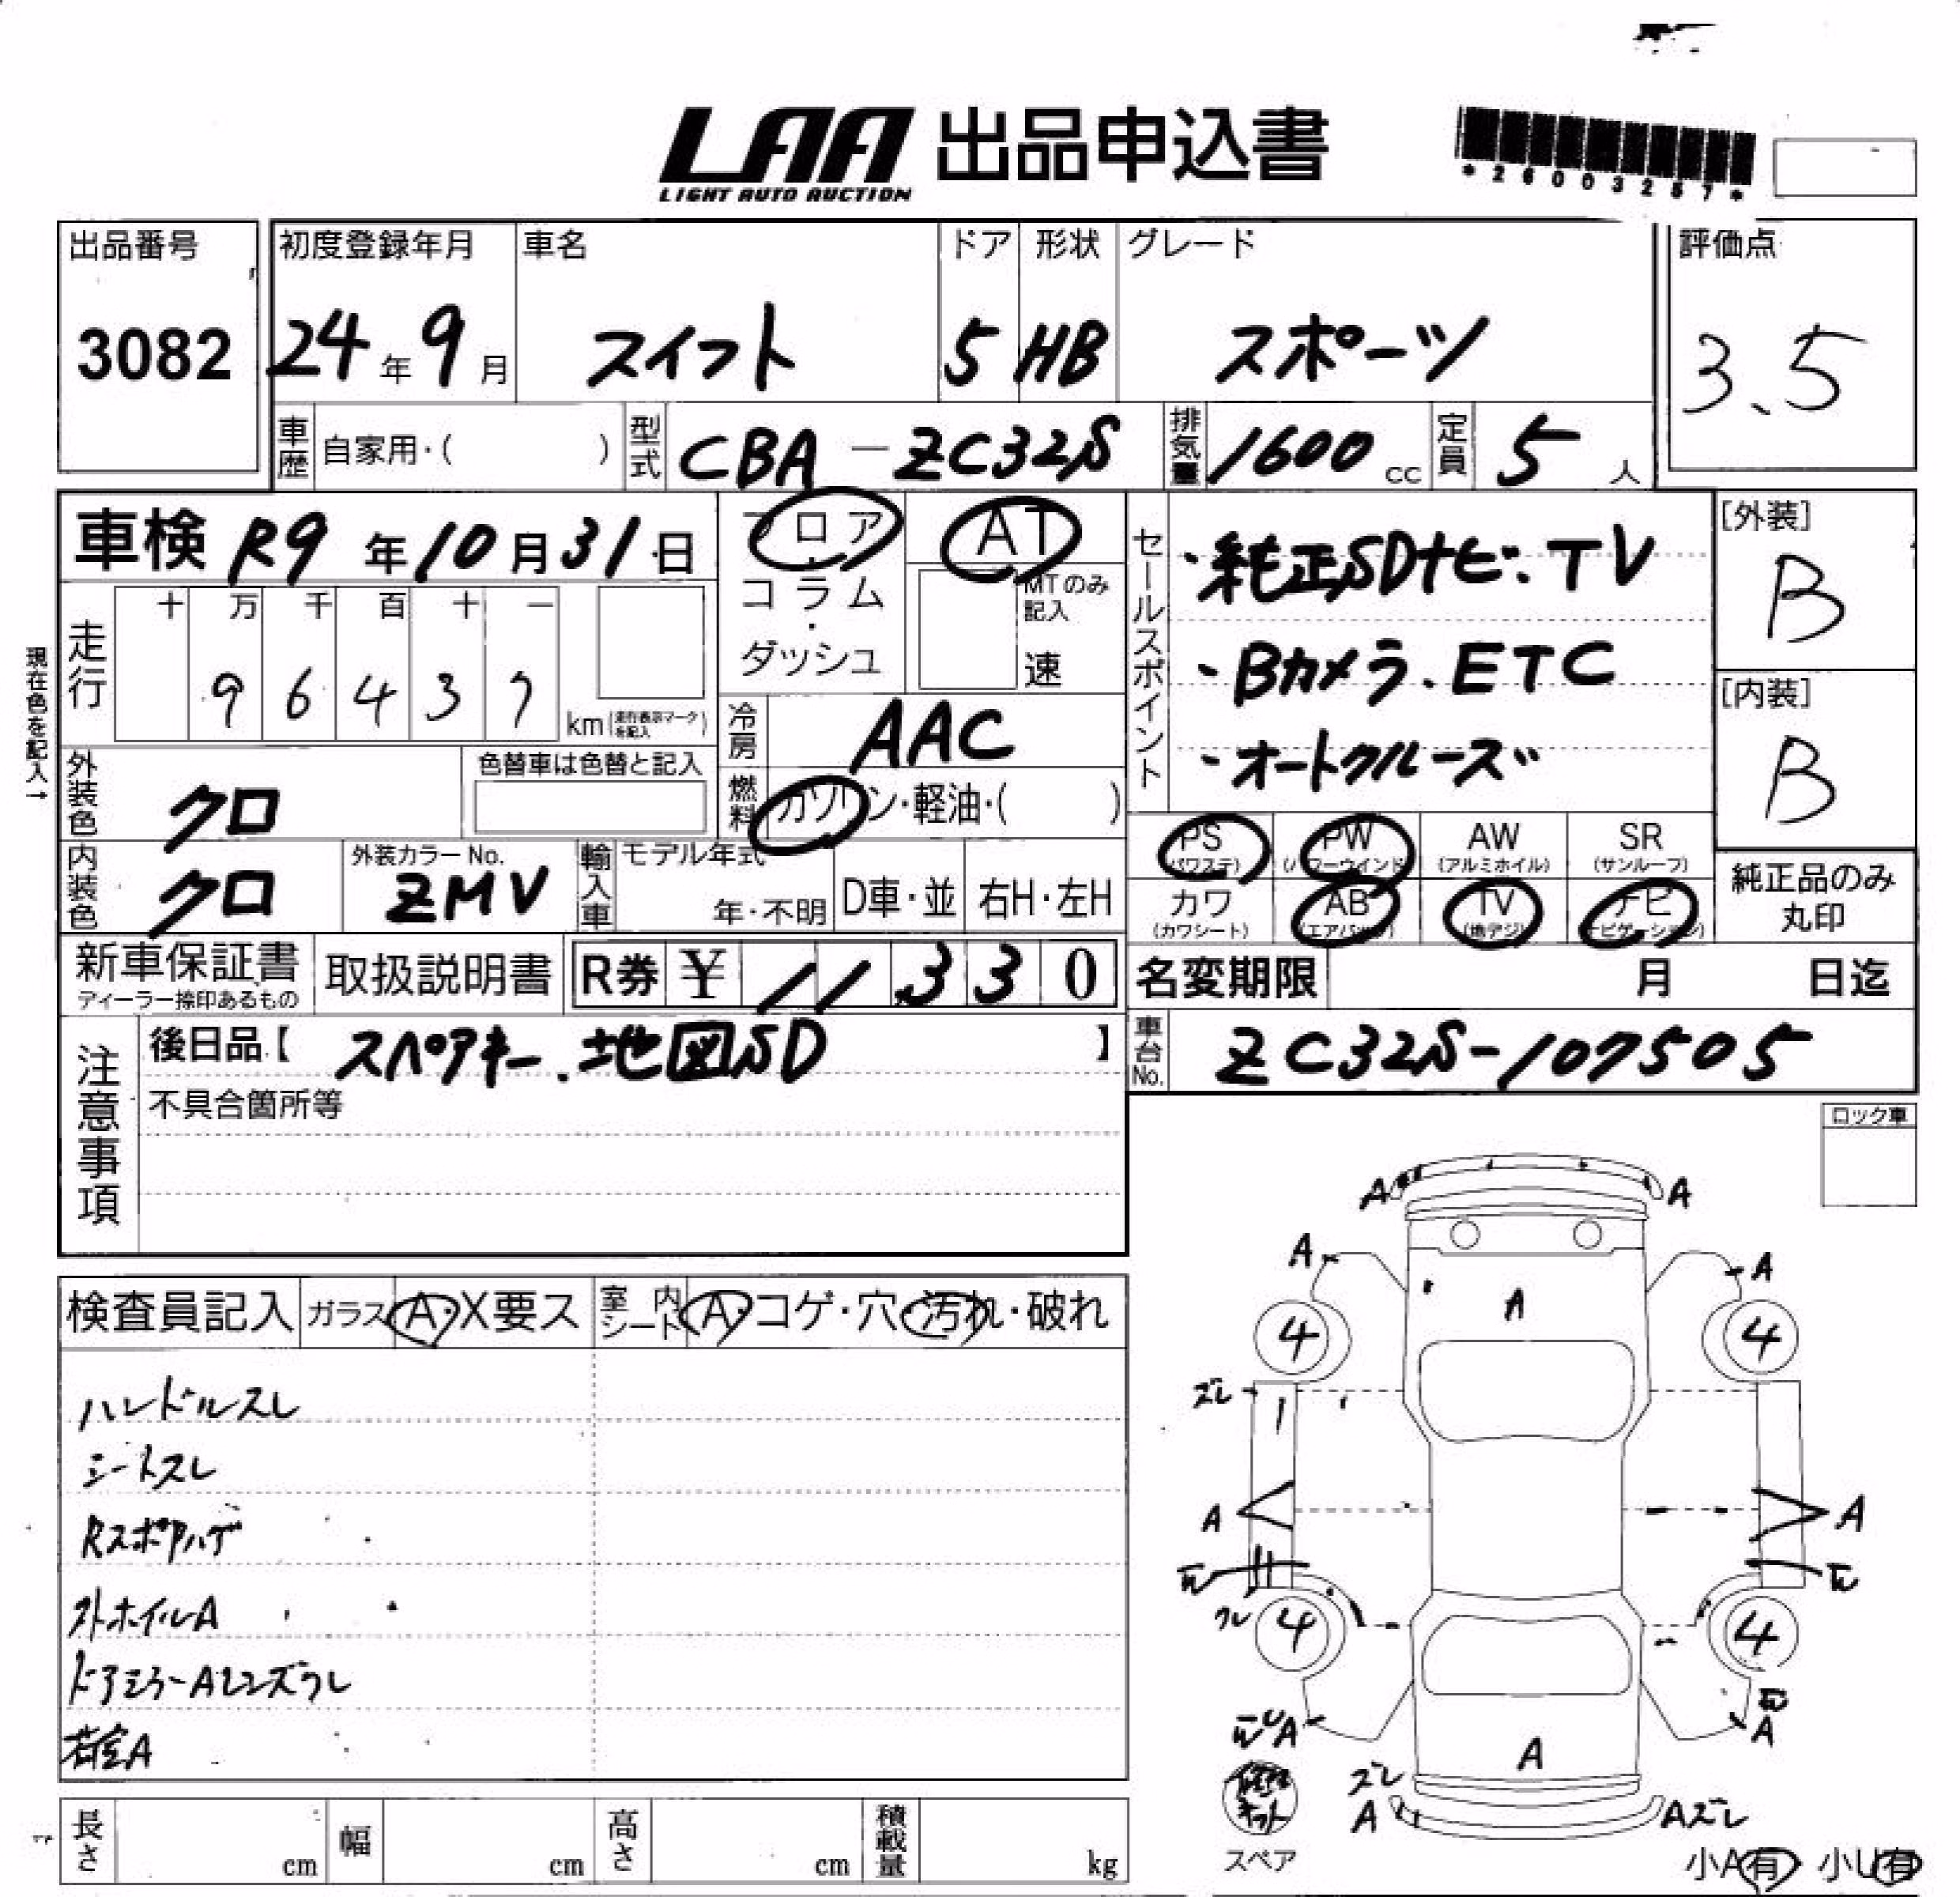 LAA 出品申込書
LIGHT AUTO AUCTION
*26003257*
出品番号 初度登録年月 車名 ドア 形状 グレード 評価点
3082 24年9月 スイフト 5 HB スポーツ 3.5
車歴 自家用・( ) 型式 CBA-ZC32S 排気量 1600cc 定員 5人
車検 R9年10月31日 フロア・コラム・ダッシュ AT
MTのみ記入 速
セールスポイント
・純正SDナビ.TV
・Bカメラ.ETC
・オートクルーズ
[外装] B
[内装] B
現在色を記入→
走行 十 万 千 百 十 一
9 6 4 3 7 km(走行表示マークを記入)
冷房 AAC
外装色 クロ 色替車は色替と記入
燃料 ガソリン・軽油・( )
内装色 クロ 外装カラーNo. ZMV 輸入車 モデル年式 年・不明 D車・並 右H・左H
PS(パワステ) PW(パワーウインド) AW(アルミホイル) SR(サンルーフ)
カワ(カワシート) AB(エアバッグ) TV(地デジ) ナビ(ナビゲーション)
純正品のみ丸印
新車保証書 ディーラー捺印あるもの 取扱説明書 R券 ¥ 11,330
名変期限 月 日迄
注意事項 後日品【スペアキー.地図SD】
車台No. ZC32S-107505
不具合箇所等
ロック車
検査員記入 ガラス A・X要ス 室内シート A・コゲ・穴・汚れ・破れ
ハンドルスレ
シートスレ
Rスポアハゲ
ストホイルA
ドアミラーAレンズウレ
A
A A
A A
A
4 4
ズレ
A A
クレ
4 4
A A
A
ズレ
A Aズレ
修理キット
スペア
小A有 小U有
長さ cm 幅 cm 高さ cm 積載量 kg